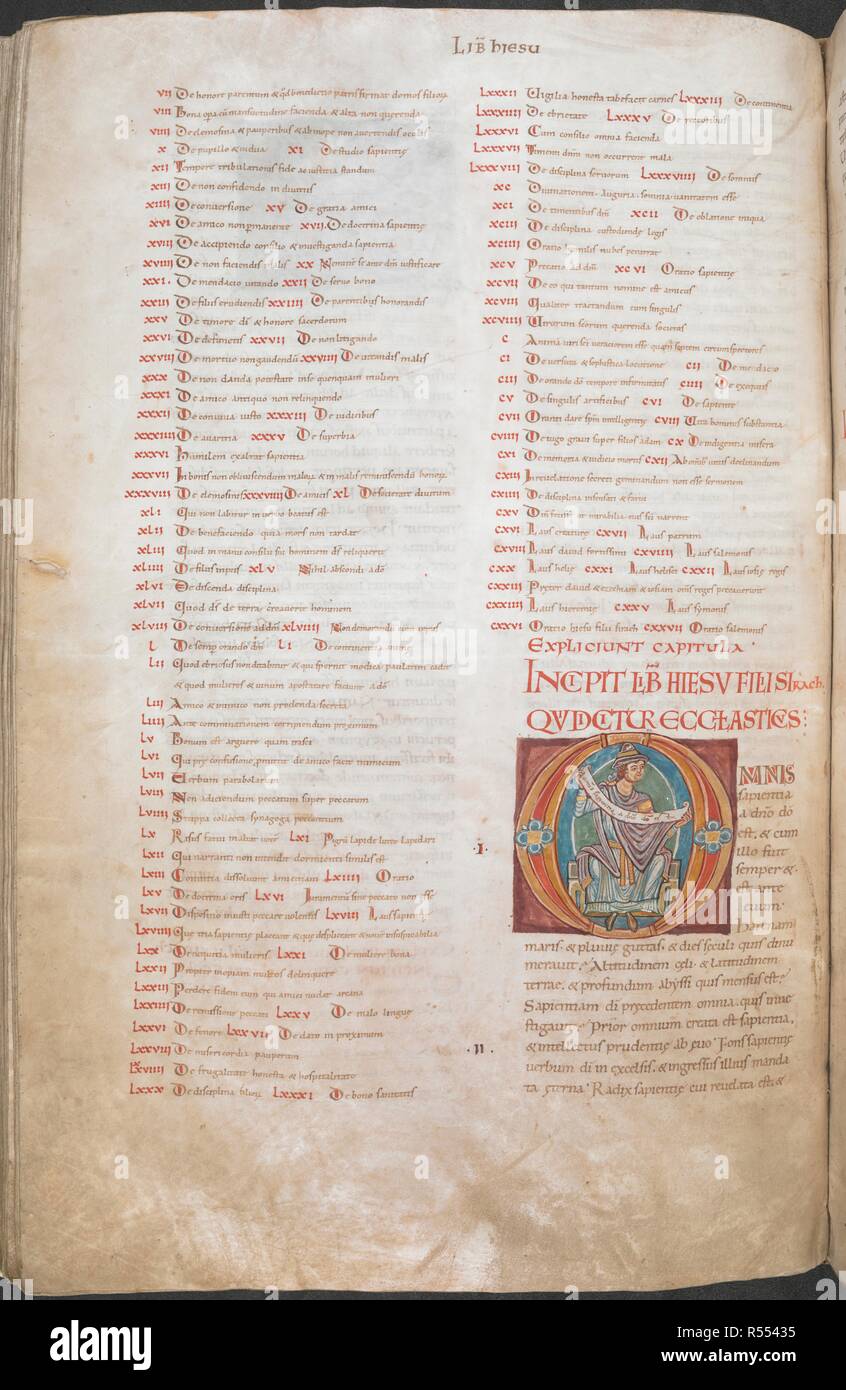 LIB hIESU
VII De honore parentum & qd benedictio patris firmat domos filiorum
VIII Bona opa cū mansuetudine facienda & alta non querenda
VIIII De elemosina & pauperibus & ab inope non avertendis oculis
X De pupillo & vidua XI De studio sapientię
XII Tempore tribulationis fide ac iustitia standum
XIII De non confidendo in divitiis
XIIII De conversione XV De gratia amici
XVI De amico non permanente XVII De doctrina sapientię
XVIII De accipiendo consilio & investiganda sapientia
XVIIII De non faciendis malis XX Nemine se ante dm iustificare
XXI De mendacio vitando XXII De servo bono
XXIII De filiis erudiendis XXIIII De parentibus honorandis
XXV De timore di & honore sacerdotum
XXVI De defunctis XXVII De non litigando
XXVIII De mortuo non gaudendū XXVIIII De vitandis malis
XXX De non danda potestate in se quenquam mulieri
XXXI De amico antiquo non relinquendo
XXXII De convivia iusto XXXIII De iudicibus
XXXIIII De avaritia XXXV De superbia
XXXVI Humilem exaltat sapientia
XXXVII In bonis non obliviscendum malorū & in malis reminiscendū bonorū
XXXVIII De elemosinis XXXVIIII De amicis XL De societate divitum
XLI Qui non labitur in verbo beatus est
XLII De benefaciendo quia mors non tardat
XLIII Quod in manu consilii sui hominem ds reliquerit
XLIIII De filiis impiis XLV Nihil abscondi a dō
XLVI De discenda disciplina
XLVII Quod ds de terra creaverit hominem
XLVIII De conversione ad dm XLVIIII Non demorandū in errore
L De semp orando dm LI De continentia
LII Quod ebriosus non ditabitur & qui spernit modica paulatim cadit
& quod mulieres & vinum apostatare faciunt a dō
LIII Amico & inimico non prodenda secreta
LIIII Ante comminationem corripiendum proximum
LV Bonum est arguere quam irasci
LVI Qui pro confusione pmittit de amico facit inimicum
LVII Verbum parabolarum
LVIII Non adiciendum peccatum super peccatum
LVIIII Stuppa collecta synagoga peccantium
LX Risus fatui
LXII Qui narranti non intendit dormienti similis est
LXIII Convitia dissolvunt amicitiam LXIIII Oratio
LXV De doctrina oris LXVI Iuramentū sine peccato non esse
LXVII LXVIII Laus sapientię
LXVIIII Que tria sapientię placeant & que displiceant
LXX De nequitia mulieris LXXI De muliere bona
LXXII Propter inopiam multos delinquere
LXXIII Perdere fidem eum qui amici nudat arcana
LXXIIII De remissione peccati LXXV De malo linguę
LXXVI De fenore LXXVII De dato in proximum
LXXVIII De misericordia pauperum
LXXVIIII De frugalitate honesta & hospitalitate
LXXX De disciplina filiorū LXXXI De bono sanitatis
LXXXII Vigilia honesta tabefaciet carnes LXXXIII De continentia
LXXXIIII De ebrietate LXXXV De rectoribus
LXXXVI Cum consilio omnia facienda
LXXXVII Timenti dnm non occurrent mala
LXXXVIII De disciplina servorum LXXXVIIII De somniis
XC Divinationem auguria somnia vanitatem esse
XCI De timentibus dm XCII De oblatione iniqua
XCIII De disciplina custodiendę legis
XCIIII Oratio humilis nubes penetrat
XCV Precatio ad dm XCVI Oratio sapientię
XCVII De eo qui tantum nomine est amicus
XCVIII Qualiter tractandum cum singulis
XCVIIII Virorum scorum querenda societas
C Anima viri sci veraciorem esse quam septem circumspectores
CI De versuta & sophistica locutione CII De mendacio
CIII De orando dō tempore infirmitatis CIIII De exequiis
CV De singulis artificibus CVI De sapiente
CVII Oranti dare spm intelligentię CVIII Vita hominis substantia
CVIIII De iugo gravi super filios adam CX De indigentia misera
CXI De memoria & iudicio mortis CXII Ab omib vitiis declinandum
CXIII In revelatione secreti geminandum non esse sermonem
CXIIII De disciplina insensati & fatui
CXV Dm fecisse ut mirabilia eius sci narrent
CXVI Laus creaturę CXVII Laus patrum
CXVIII Laus david fortissimi CXVIIII Laus salemonis
CXX Laus helię CXXI Laus helisei CXXII Laus iosię regis
CXXIII Pręter david & ezechiam & iosiam oms reges peccaverunt
CXXIIII Laus hieremię CXXV Laus symonis
CXXVI Oratio hiesu filii sirach CXXVII Oratio salemonis
EXPLICIUNT CAPITULA
INCIPIT LIB HIESV FILII SIrach.
QVI DICITUR ECCLASTICVS:
OMNIS
sapientia
a dño dō
est, & cum
illo fuit
semper &
est ante
ęvum.
.I. harenam
maris & pluvię guttas, & dies sęculi quis dinu
meravit? Altitudinem cęli & latitudinem
terrae, & profundum abyssi quis mensus est?
Sapientiam di pręcedentem omnia, quis inve
stigavit? Prior omnium creata est sapientia,
& intellectus prudentię ab ęvo. Fons sapientię
.II. verbum di in excelsis, & ingressus illius manda
ta ęterna. Radix sapientię cui revelata est, &
alamy
Image ID: R55435
www.alamy.com